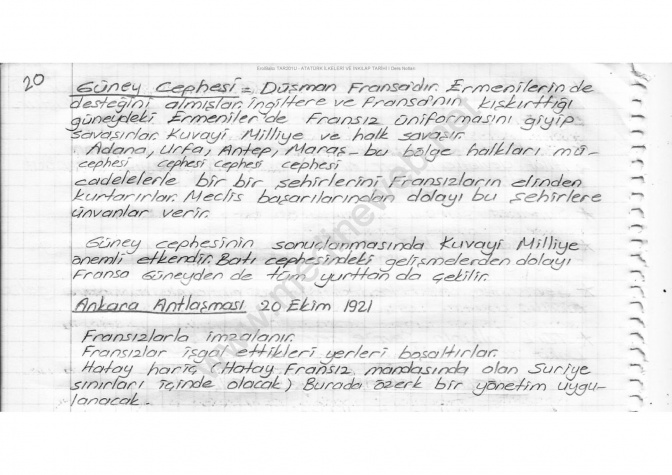 Erolbatu TAKSUYU - ATATÜRK İLKELERİ VE İNKILAP TARİHİ I Ders Notları
20
Güney Cephesi =, Düşman Fransa'dır. Ermenilerin de
desteğini almışlar. İngiltere ve Fransa'nın kışkırttığı
güneydeki Ermeniler'de Fransız üniformasını giyip
savaşırlar. Kuvayi Milliye ve halk savaşır.
Adana, Urfa, Antep, Maraş - bu bölge halkları mü-
cephesi cephesi cephesi cephesi
cadelelerle bir bir şehirlerini Fransızların elinden
kurtarırlar. Meclis başarılarından dolayı bu şehirlere
ünvanlar verir.
Güney cephesinin sonuçlanmasında Kuvayi Milliye
önemli etkendir. Batı cephesindeki gelişmelerden dolayı
Fransa Güneyden de tüm yurttan da çekilir.
Ankara Antlaşması 20 Ekim 1921
Fransızlarla imzalanır.
Fransızlar işgal ettikleri yerleri boşaltırlar.
Hatay hariç (Hatay Fransız mandasında olan Suriye
sınırları içinde olacak) Burada özerk bir yönetim uygu-
lanacak.